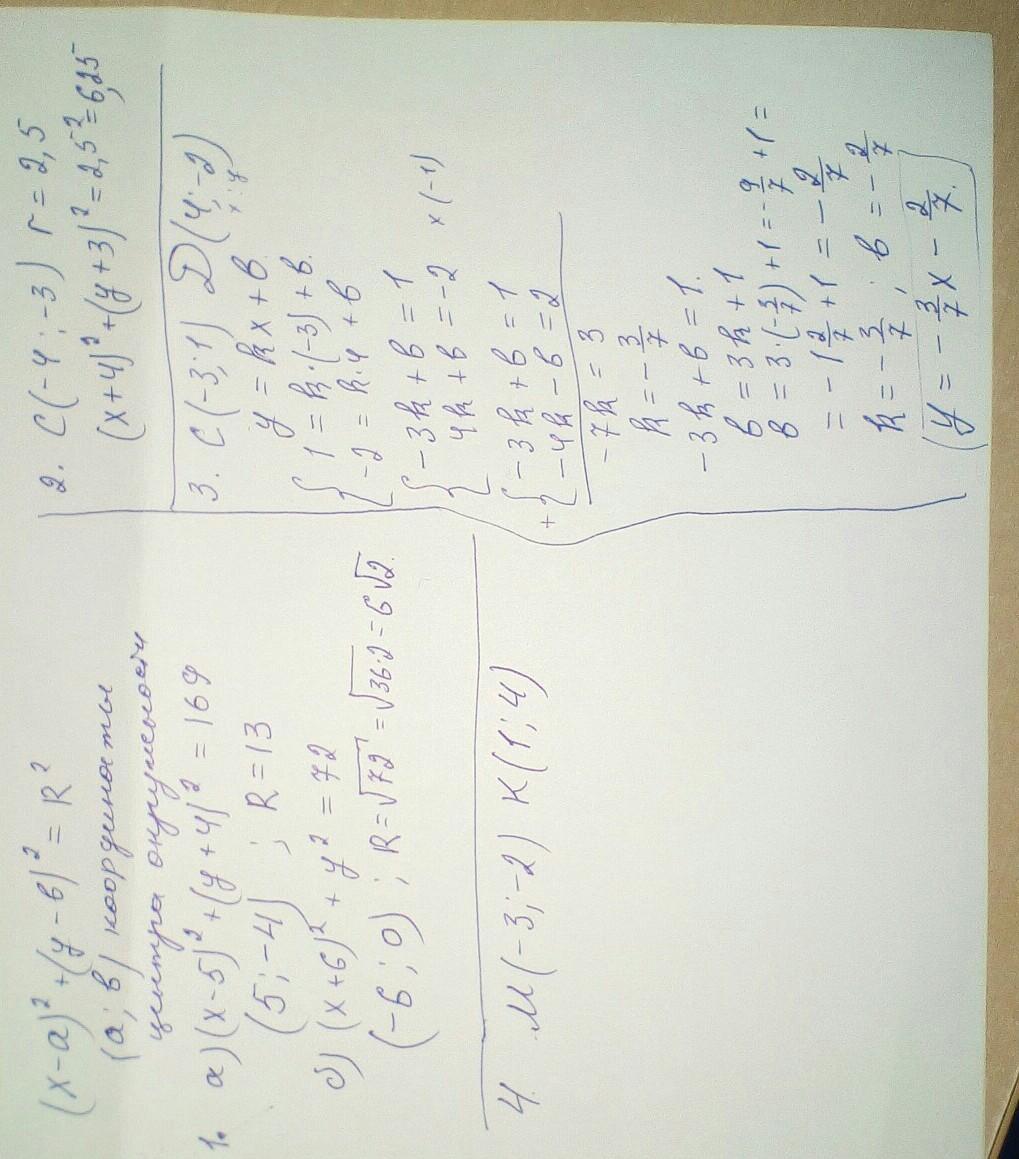 (x-a)² + (y-в)² = R²
(a; в) координаты
центра окружности
1. а) (x-5)² + (y+4)² = 169
(5; -4) ; R = 13
б) (x+6)² + y² = 72
(-6; 0) ; R = √72 = √36·2 = 6√2.
4. M(-3; -2) K(1; 4)
2. C(-4; -3) r = 2,5
(x+4)² + (y+3)² = 2,5² = 6,25
3. C(-3; 1) D(4; -2)
x ; y
y = kx + в
{ 1 = k·(-3) + в.
-2 = k·4 + в
{ -3k + в = 1
4k + в = -2 x(-1)
+ { -3k + в = 1
-4k - в = 2
-7k = 3
k = -3/7
-3k + в = 1.
в = 3k + 1
в = 3·(-3/7) + 1 = -9/7 + 1 =
= -1 2/7 + 1 = -2/7
k = -3/7 ; в = -2/7
(y = -3/7 x - 2/7.